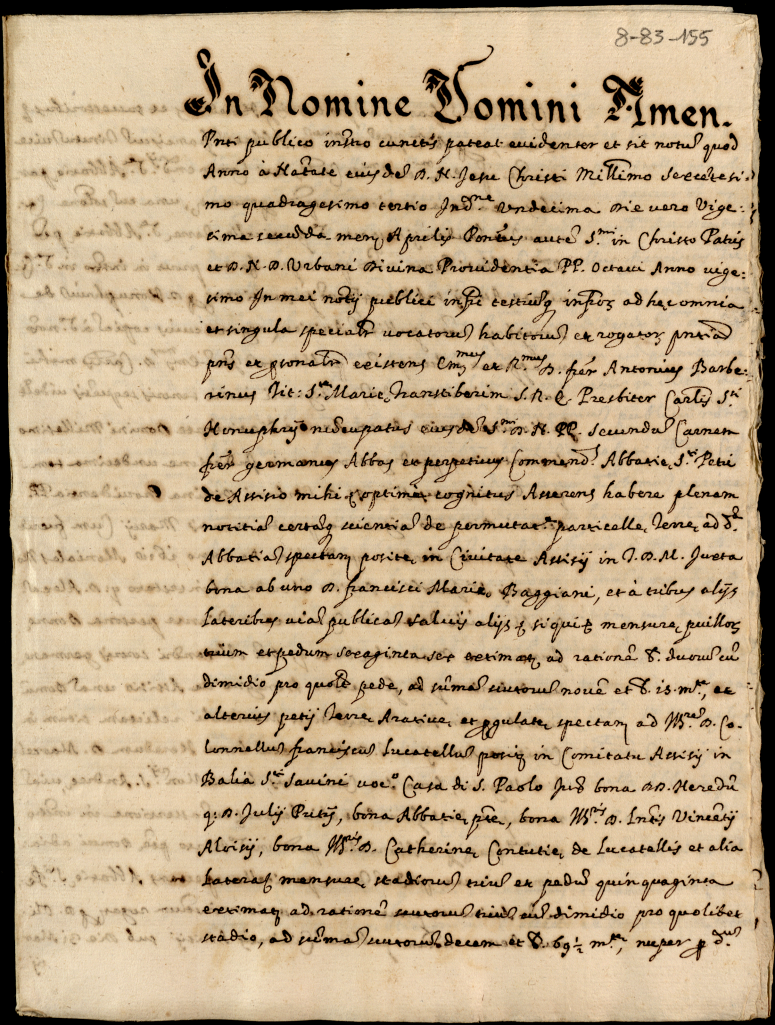 8-83-155
In Nomine Domini Amen.
Pnti publico instro cunctis pateat evidenter et sit notu quod
Anno à Natate eiusde D. N. Jesu Christi Millimo sexcetesi-
mo quadragesimo tertio Indne Undecima Die vero Vige-
sima secuda mens Aprilis Pontus aute Smi in Christo Patris
et D. N. D. Urbani Divina Providentia PP. Octavi Anno vige-
simo In mei notij publici testiuq ad hec omnia
et singula specialr vocatoru habitoru et rogator
pns et psonalr existens Emmus et Rmus D. frer Antonius Barbe-
rinus Tit: Ste Marie Transtiberim S. R. E. Presbiter Carlis Sti
Honuphrij nucupatus eiusde Smi D. N. PP. secundu Carnem
frer germanus Abbas et perpetuus Commends Abbatie Sti Petri
de Assisio mihi optime cognitus Asserens habere plenam
notitia certaq scientia de permutat particelle Terre ad
Abbatia spectan posite in Civitate Assisij in P. D. M. Juxta
bona ab uno D. francisci Marie Baggiani, et à tribus alijs
lateribus vias publicas salvis alijs si qui mensure puillor
trium et pedum sexaginta sex extimat ad ratione duoru cu
dimidio pro quolt pede, ad suma scutoru nove et 15 mta, et
alterius petij Terre Arative et spectan ad D. Co-
lonnellu franciscu Lucatellu posit in Comitatu Assisij in
Balia Sti Savini voco Casa di S. Paolo Jux bona DD. Heredu
q. D. Julij bona Abbatie pte, bona D. Vincentij
Aloisij, bona D. Catherine Contutie de Lucatellis et alia
latera mensure stadioru triu et pedu quinquaginta
extimat ad ratione scutoru triu cu dimidio pro quolibet
stadio, ad suma scutoru decem et 69½ mta, nuper p